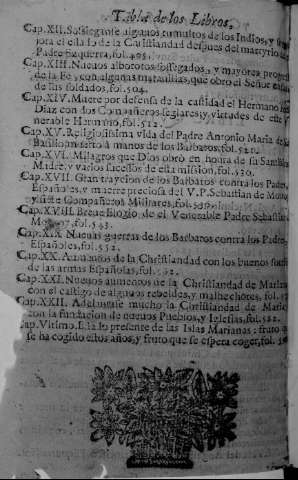 Tabla de los Libros.
Cap. XII. Sossiegãse algunos tumultos de los Indios, y
jora el estado de la Christiandad despues del martyrio
Padre Ezquerra, fol. 495.
Cap. XIII. Nuevos alborotos sossegados, y mayores progres
de la Fè, con algunas maravillas, que obro el Señor
de los soldados, fol. 504.
Cap. XIV. Muere por defensa de la castidad el Hermano
Diaz con dos Compañeros seglares; y virtudes de este
nerable Hermano, fol. 512.
Cap. XV. Religiosissima vida del Padre Antonio Maria de
Basilio muerto à manos de los Barbaros, fol. 521.
Cap. XVI. Milagros que Dios obrò en honra de su Santiss
Madre, y varios sucessos de esta mission, fol. 530.
Cap. XVII. Gran traycion de los Barbaros contra los Padres,
Españoles, y muerte preciosa del V. P. Sebastian de Monro
y siete Compañeros Militares, fol.
Cap. XVIII. Breve Elogio de el Venerable Padre Sebastia
Monroy, fol. 543.
Cap. XIX. Nuevas guerras de los Barbaros contra los Padres,
Españoles, fol. 552.
Cap. XX. Aumentos de la Christiandad con los buenos
de las armas Españolas, fol.
Cap. XXI. Nuevos aumentos de la Christiandad de Marian
con el castigo de algunos rebeldes, y malhechores, fol.
Cap. XXII. Adelantase mucho la Christiandad de Maria
con la fundacion de nuevos Pueblos, y Iglesias, fol. 582.
Cap. Vltimo. Estado presente de las Islas Marianas: fruto q
se ha cogido estos años, y fruto que se espera coger, fol.